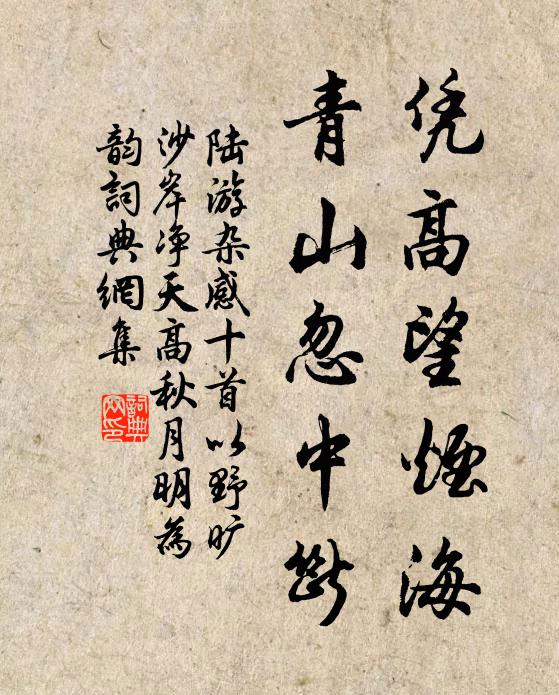 凭高望煙海
青山忽中斷
陆游杂感十首以野旷
沙岸净天高秋月明為
韵詞典網集
詞典
网印